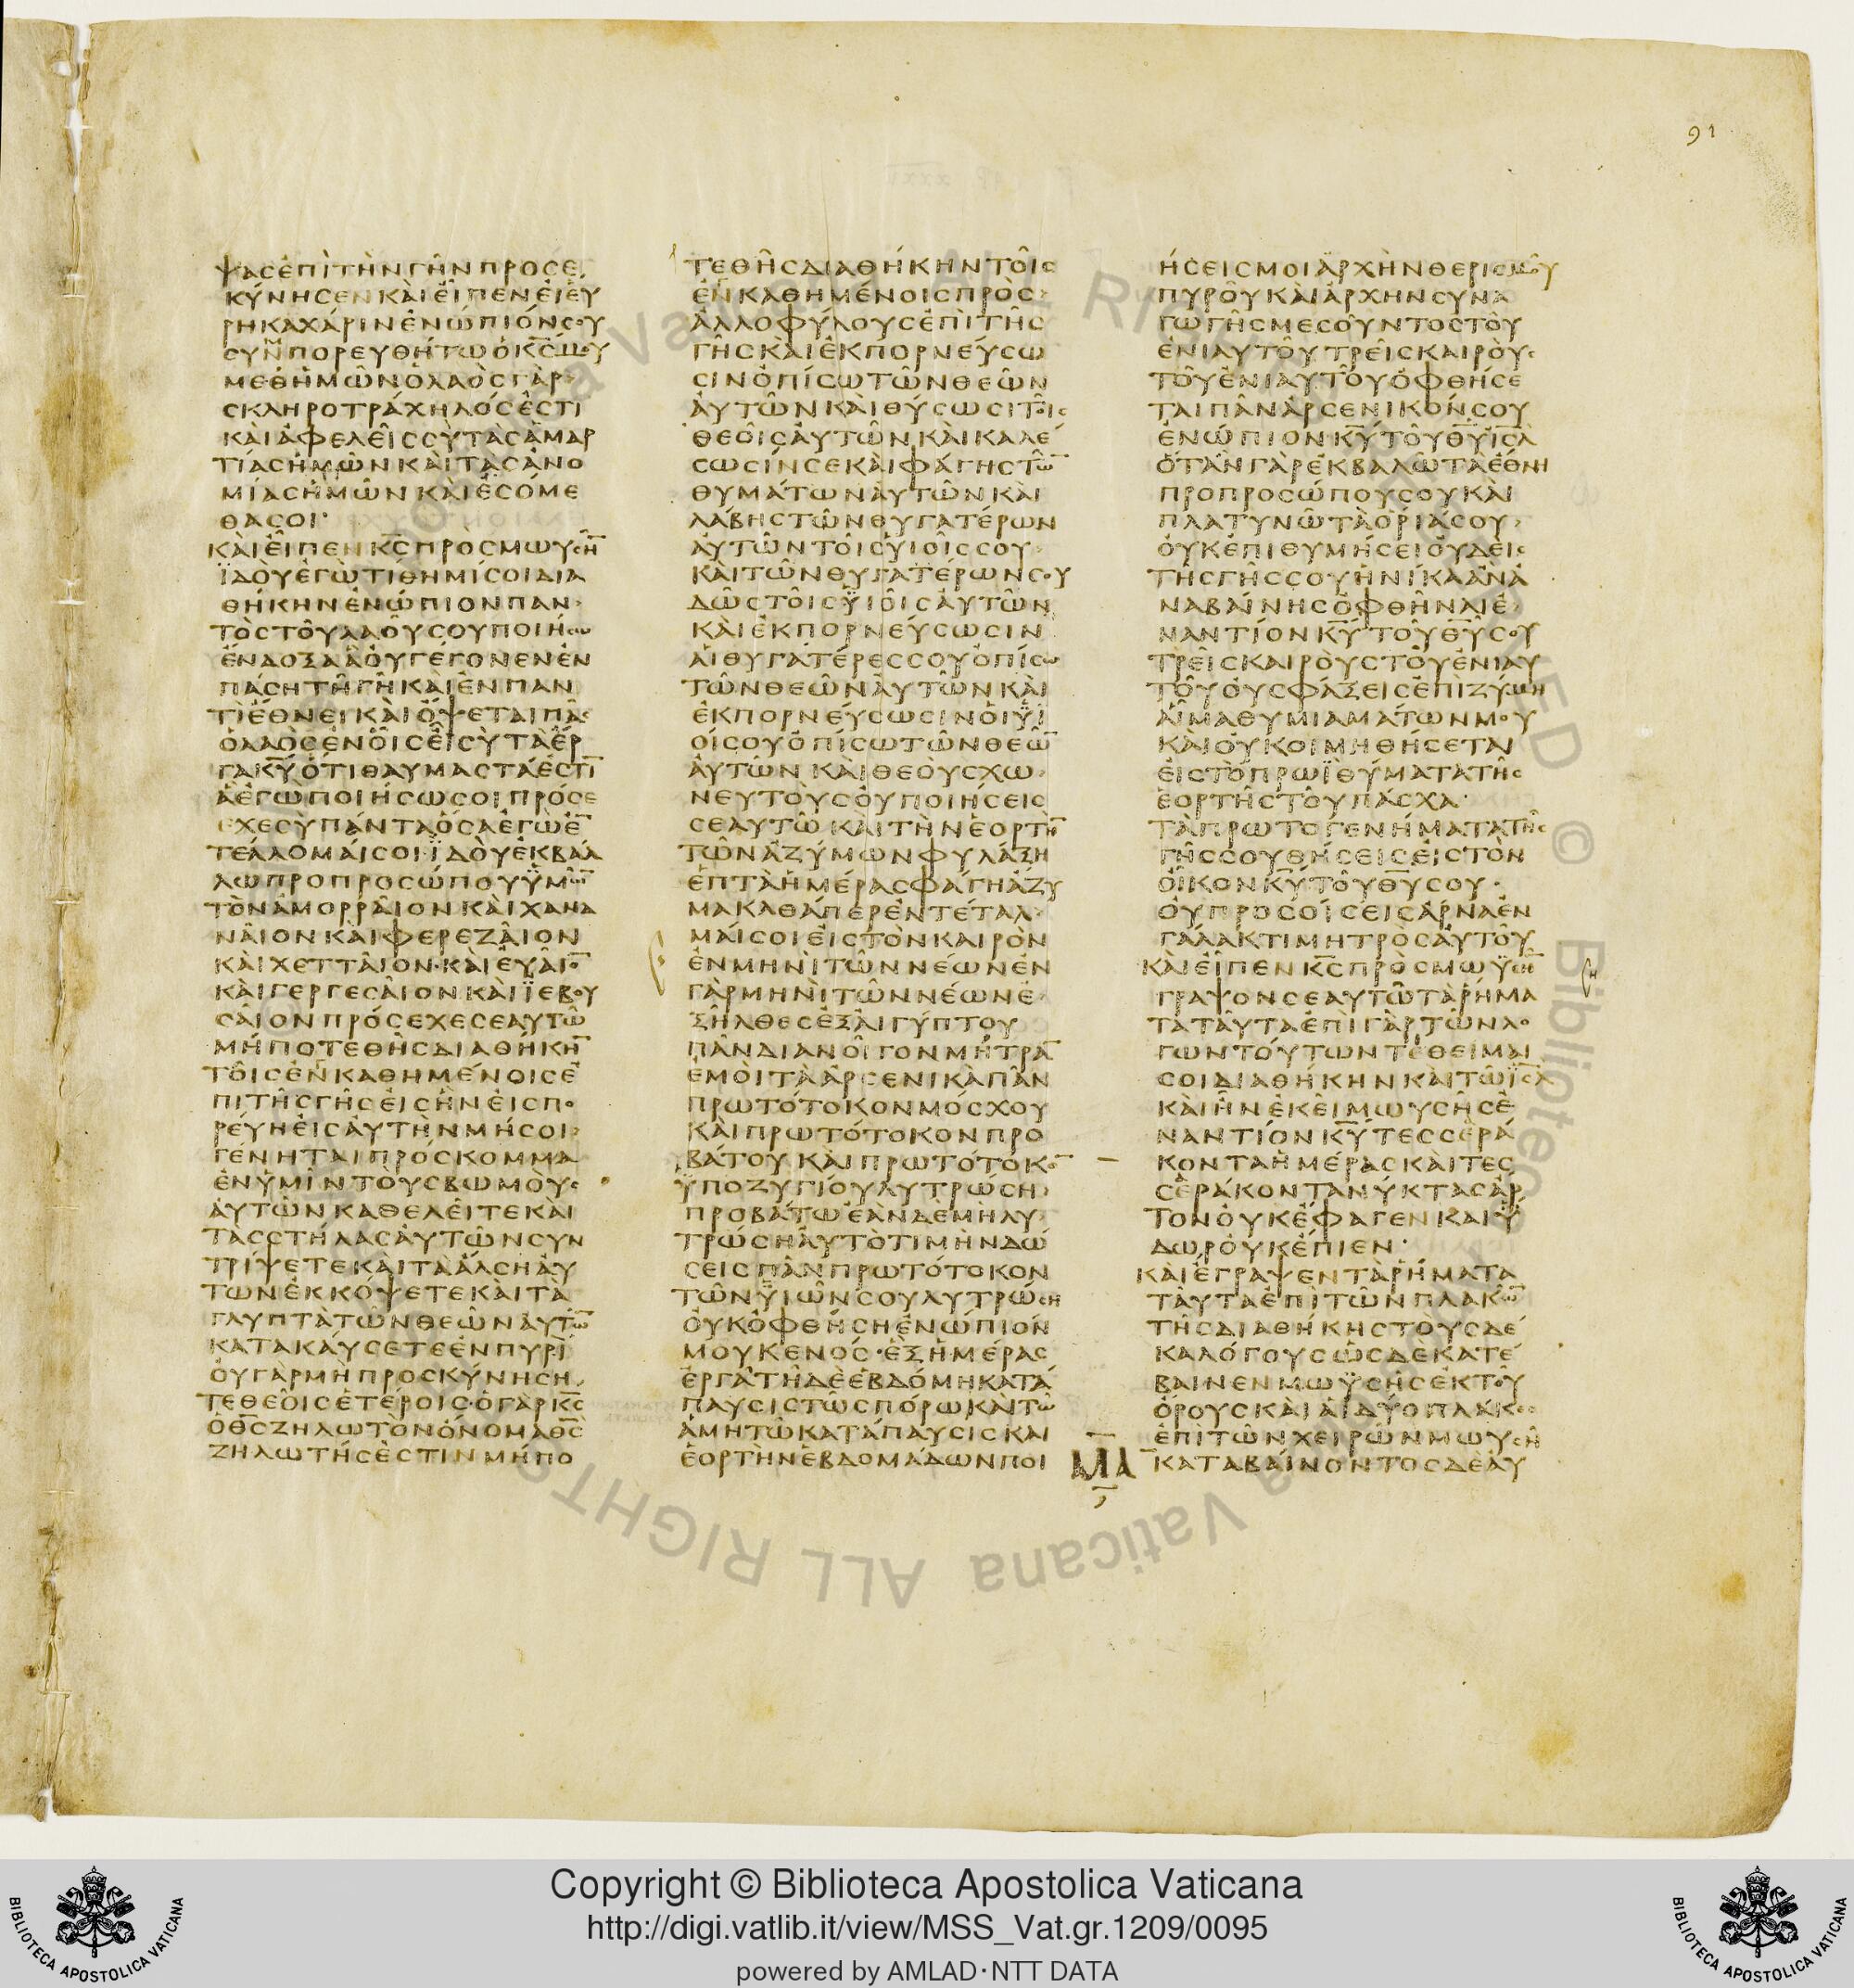 91
ψας ἐπὶ τὴν γῆν προσε
κύνησεν καὶ εἶπεν εἰ εὕ
ρηκα χάριν ἐνώπιόν σου
συμπορευθήτω ὁ κ̅ς̅ μου
μεθ ἡμῶν ὁ λαὸς γὰρ
σκληροτράχηλός ἐστι
καὶ ἀφελεῖς σὺ τὰς ἁμαρ
τίας ἡμῶν καὶ τὰς ἀνο
μίας ἡμῶν καὶ ἐσόμε
θα σοι·
καὶ εἶπεν κ̅ς̅ πρὸς μωυσῆ̅
ϊδοὺ ἐγὼ τίθημί σοι δια
θήκην ἐνώπιον παν
τὸς τοῦ λαοῦ σου ποιήσω
ἔνδοξα ἃ οὐ γέγονεν ἐν
πάσῃ τῇ γῇ καὶ ἐν παν
τὶ ἔθνει καὶ ὄψεται πᾶς
ὁ λαὸς ἐν οἷς εἶ σὺ τὰ ἔρ
γα κ̅υ̅ ὅτι θαυμαστά ἐστι̅
ἃ ἐγὼ ποιήσω σοι πρόσε
χε σὺ πάντα ὅσα ἐγὼ ἐ̅
τέλλομαί σοι ϊδοὺ ἐκβάλ
λω πρὸ προσώπου ϋμῶ̅
τὸν ἀμορραῖον καὶ χανα
ναῖον καὶ φερεζαῖον
καὶ χετταῖον καὶ εὑαῖο̅
καὶ γεργεσαῖον καὶ ϊεβου
σαῖον πρόσεχε σεαυτῷ
μήποτε θῇς διαθήκη̅
τοῖς ἐνκαθημένοις ἐ
πὶ τῆς γῆς εἰς ἣν εἰσπο
ρεύῃ εἰς αὐτὴν μή σοι
γένηται πρόσκομμα
ἐν ὑμῖν τοὺς βωμοὺς
αὐτῶν καθελεῖτε καὶ
τὰς στήλας αὐτῶν συν
τρίψετε καὶ τὰ ἄλση αὐ
τῶν ἐκκόψετε καὶ τὰ
γλυπτὰ τῶν θεῶν αὐτῶ̅
κατακαύσετε ἐν πυρί
οὐ γὰρ μὴ προσκύνησῃ
τε θεοῖς ἑτέροις ὁ γὰρ κ̅ς̅
ὁ θ̅ς̅ ζηλωτὸν ὄνομα θ̅ς̅
ζηλωτής ἐστιν μήπο
τε θῇς διαθήκην τοῖς
ἐνκαθημένοις πρὸς
ἀλλοφύλους ἐπὶ τῆς
γῆς καὶ ἐκπορνεύσω
σιν ὀπίσω τῶν θεῶν
αὐτῶν καὶ θύσωσι τοῖς
θεοῖς αὐτῶν καὶ καλέ
σωσίν σε καὶ φάγῃς τῶ̅
θυμάτων αὐτῶν καὶ
λάβῃς τῶν θυγατέρων
αὐτῶν τοῖς υἱοῖς σου
καὶ τῶν θυγατέρων σου
δῷς τοῖς ϋἱοῖς αὐτῶν
καὶ ἐκπορνεύσωσιν
αἱ θυγατέρες σου ὀπίσω
τῶν θεῶν αὐτῶν καὶ
ἐκπορνεύσωσιν οἱ ϋἱ
οί σου ὀπίσω τῶν θεῶ̅
αὐτῶν καὶ θεοὺς χω
νευτοὺς οὐ ποιήσεις
σεαυτῷ καὶ τὴν ἑορτὴ̅
τῶν ἀζύμων φυλάξῃ
ἑπτὰ ἡμέρας φάγῃ ἄζυ
μα καθάπερ ἐντέταλ
μαί σοι εἰς τὸν καιρὸν
ἐν μηνὶ τῶν νέων ἐν
γὰρ μηνὶ τῶν νέων ἐ
ξῆλθες ἐξ αἰγύπτου
πᾶν διανοῖγον μήτρα̅
ἐμοὶ τὰ ἀρσενικὰ πᾶν
πρωτότοκον μόσχου
καὶ πρωτότοκον προ
βάτου καὶ πρωτότοκο̅
ϋποζυγίου λυτρώσῃ
προβάτῳ ἐὰν δὲ μὴ λυ
τρώσῃ αὐτὸ τιμὴν δώ
σεις πᾶν πρωτότοκον
τῶν ϋἱῶν σου λυτρώσῃ
οὐκ ὀφθήσῃ ἐνώπιόν
μου κενός· ἓξ ἡμέρας
ἐργᾷ τῇ δὲ ἑβδόμῃ κατά
παυσις τῷ σπόρῳ καὶ τῷ
ἀμητῷ κατάπαυσις καὶ
ἑορτὴν ἑβδομάδων ποι
ήσεις μοι ἀρχὴν θερισμοῦ
πυροῦ καὶ ἀρχὴν συνα
γωγῆς μεσοῦντος τοῦ
ἐνιαυτοῦ τρεῖς καιροὺς
τοῦ ἐνιαυτοῦ ὀφθήσε
ται πᾶν ἀρσενικόν σου
ἐνώπιον κ̅υ̅ τοῦ θ̅υ̅ ι̅σ̅λ̅
ὅταν γὰρ ἐκβάλω τὰ ἔθνη
πρὸ προσώπου σου καὶ
πλατυνῶ τὰ ὅριά σου
οὐκ ἐπιθυμήσει οὐδεὶς
τῆς γῆς σου ἡνίκα ἂν ἀ
ναβαίνῃς ὀφθῆναι ἐ
ναντίον κ̅υ̅ τοῦ θ̅υ̅ σου
τρεῖς καιροὺς τοῦ ἐνιαυ
τοῦ οὐ σφάξεις ἐπὶ ζύμῃ
αἷμα θυμιαμάτων μου
καὶ οὐ κοιμηθήσεται
εἰς τὸ πρωῒ θύματα τῆς
ἑορτῆς τοῦ πάσχα·
τὰ πρωτογενήματα τῆς
γῆς σου θήσεις εἰς τὸν
οἶκον κ̅υ̅ τοῦ θ̅υ̅ σου·
οὐ προσοίσεις ἄρνα ἐν
γάλακτι μητρὸς αὐτοῦ
καὶ εἶπεν κ̅ς̅ πρὸς μωϋσῆ̅
γράψον σεαυτῷ τὰ ῥήμα
τα ταῦτα ἐπὶ γὰρ τῶν λό
γων τούτων τέθειμαί
σοι διαθήκην καὶ τῷ ι̅σ̅λ̅
καὶ ἦν ἐκεῖ μωυσῆς ἐ
ναντίον κ̅υ̅ τεσσερά
κοντα ἡμέρας καὶ τεσ
σεράκοντα νύκτας ἄρ
τον οὐκ ἔφαγεν καὶ ὕ
δωρ οὐκ ἔπιεν·
καὶ ἔγραψεν τὰ ῥήματα
ταῦτα ἐπὶ τῶν πλακῶ̅
τῆς διαθήκης τοὺς δέ
κα λόγους ὡς δὲ κατέ
βαινεν μωϋσῆς ἐκ τοῦ
ὄρους καὶ αἱ δύο πλάκες
ἐπὶ τῶν χειρῶν μωυσῆ
ΜΑ
καταβαίνοντος δὲ αὐ
Copyright © Biblioteca Apostolica Vaticana
http://digi.vatlib.it/view/MSS_Vat.gr.1209/0095
powered by AMLAD·NTT DATA
BIBLIOTECA APOSTOLICA VATICANA
BIBLIOTECA APOSTOLICA VATICANA